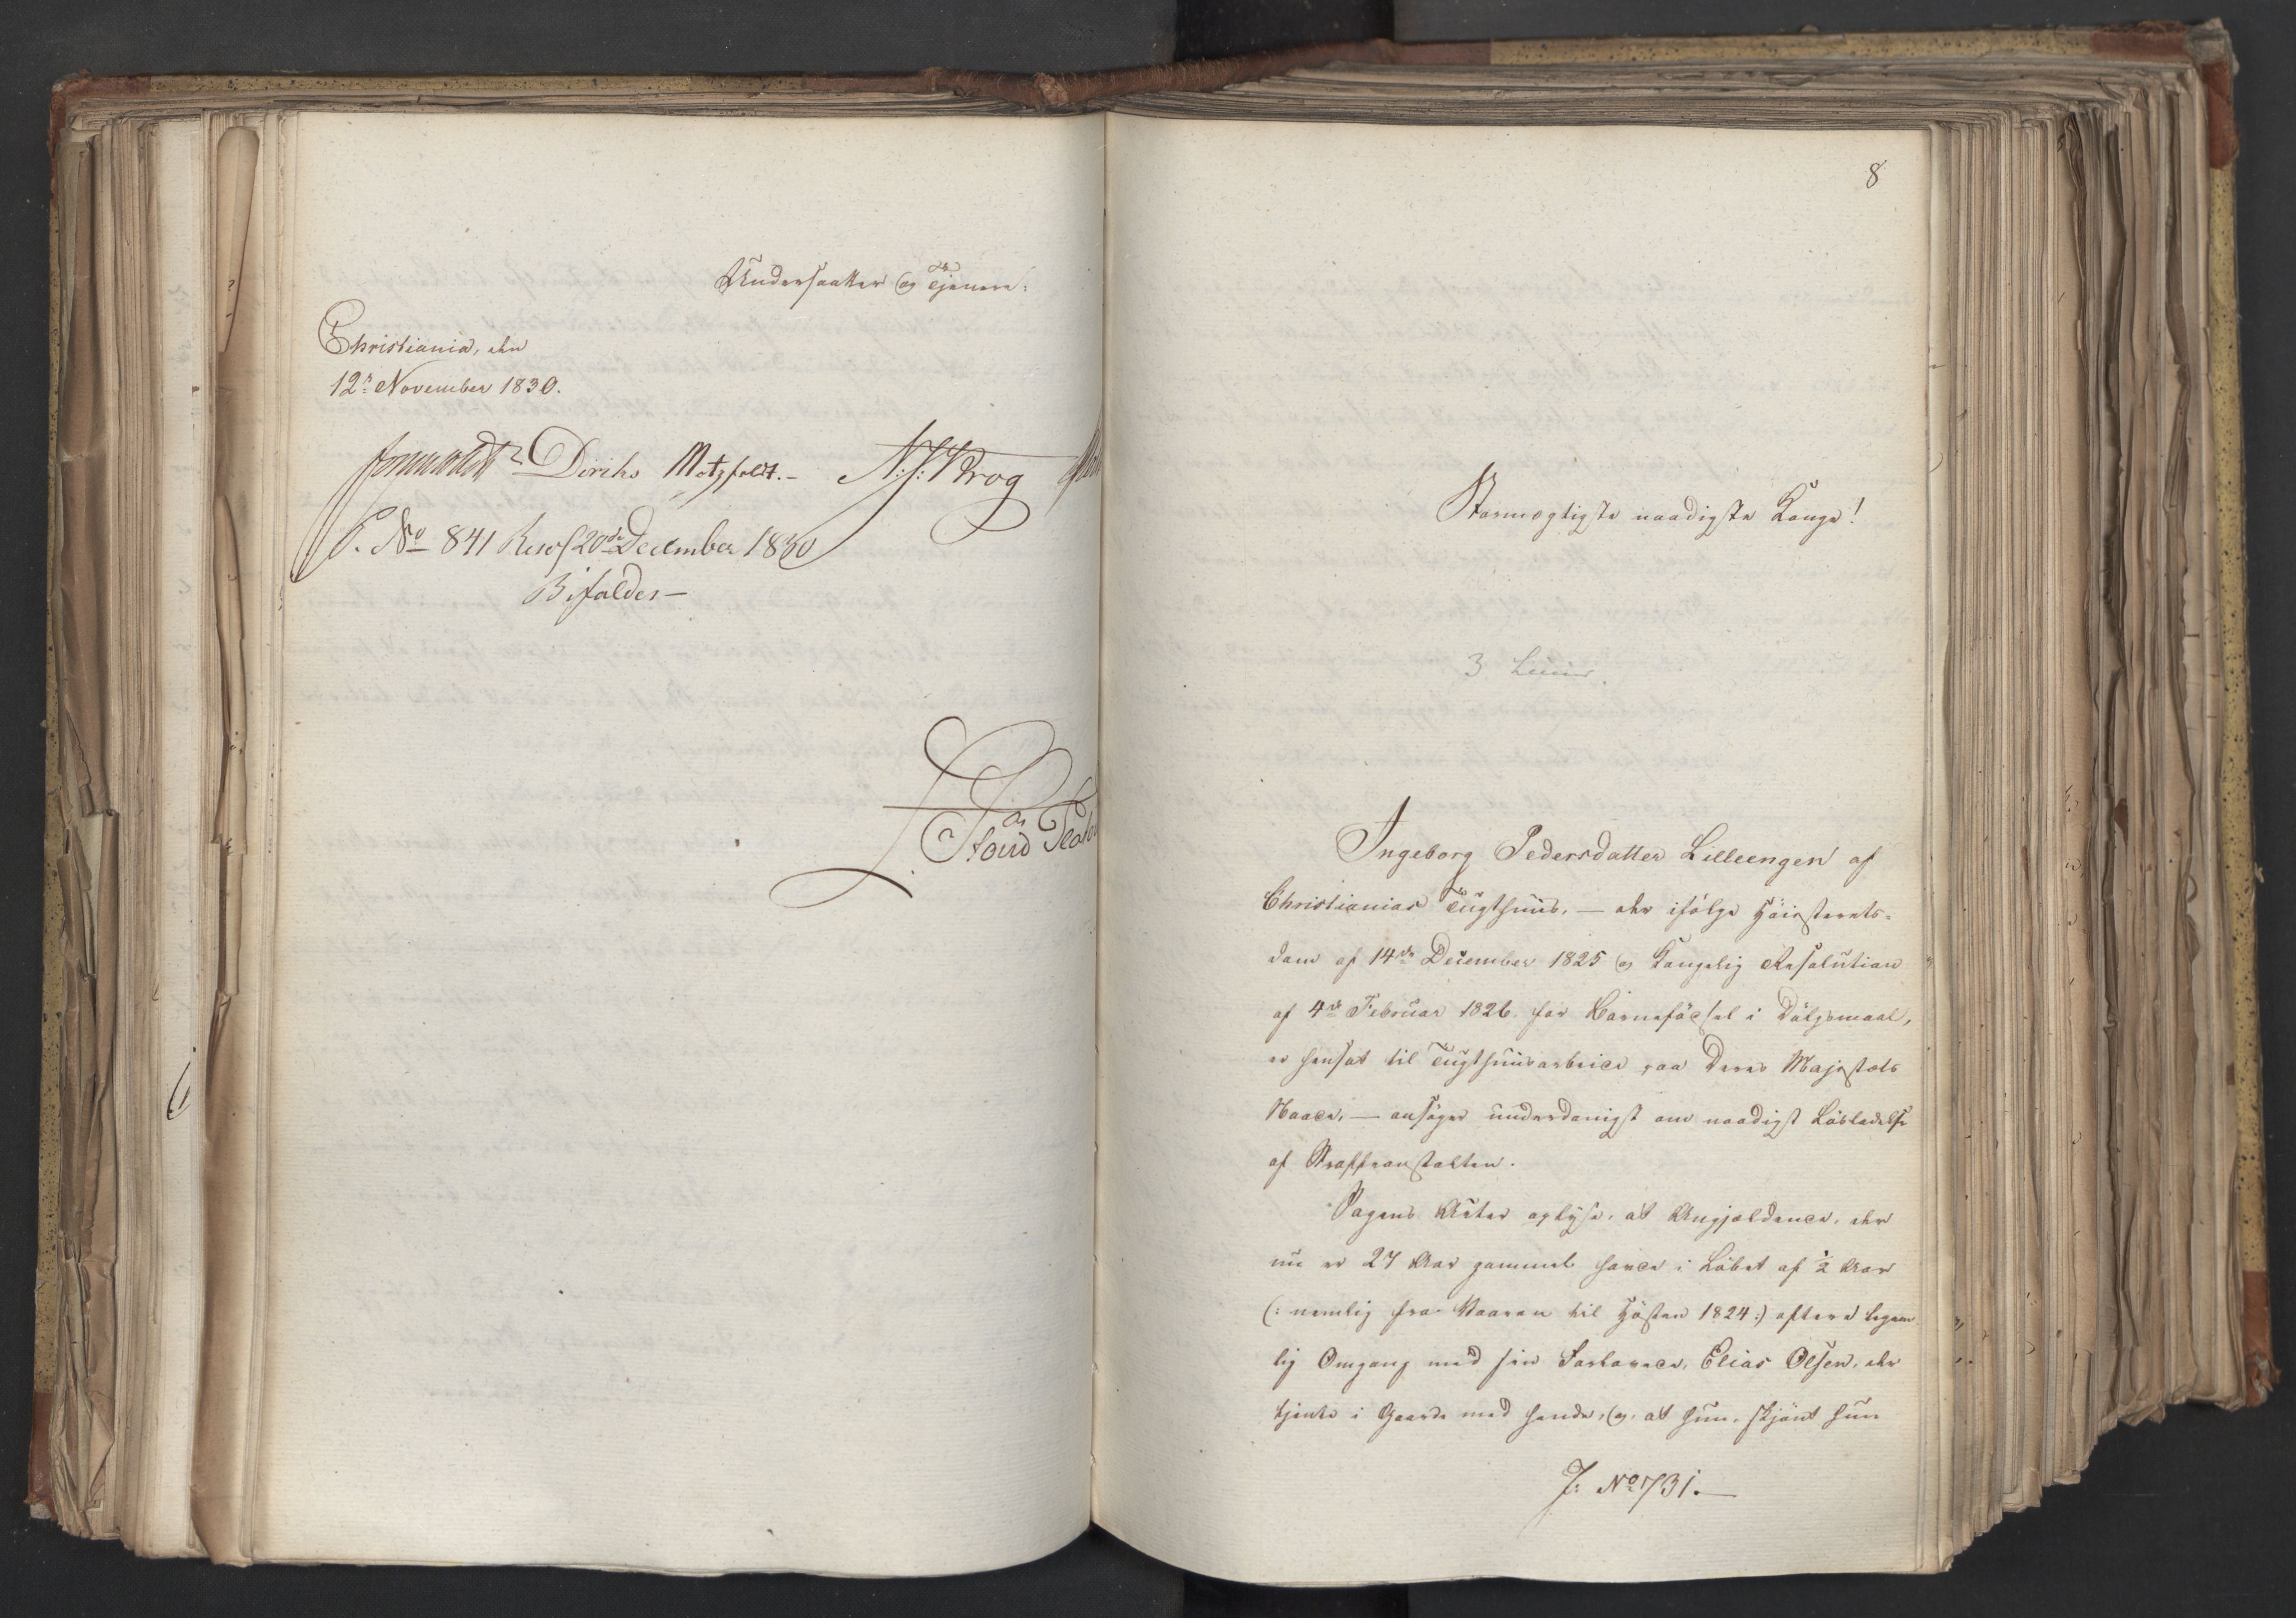 Undersaatter og Tjenere:
Christiania, den
12te November 1830.
Diriks Motzfeldt.- N: J: Krog
P. No 841 Resol 20de December 1830
Bifaldes—
8
Stormægtigste naadigste Konge!
3 Linier.
Ingeborg Pedersdatter Lilleengen af
Christianias Tugthuus, — der ifölge Höiesterets-
dom af 14de December 1825 og Kongelig Resolution
af 4de Februar 1826 for Barnefödsel i Dölgsmaal,
er hensat til Tugthuusarbeide paa Deres Majestæts
Naade, — ansöger underdanigst om naadigst Lösladelse
af Straffeanstalten.
Sagens Akter oplyse, at Angjældende, der
nu er 27 Aar gammel havde i Löbet af ½ Aar
(: nemlig fra Vaaren til Hösten 1824 :) oftere legem-
lig Omgang med sin Forlovede, Elias Olsen, der
tjente i Gaarde med hende, og, at hun, skjönt hun
J: No 731.—